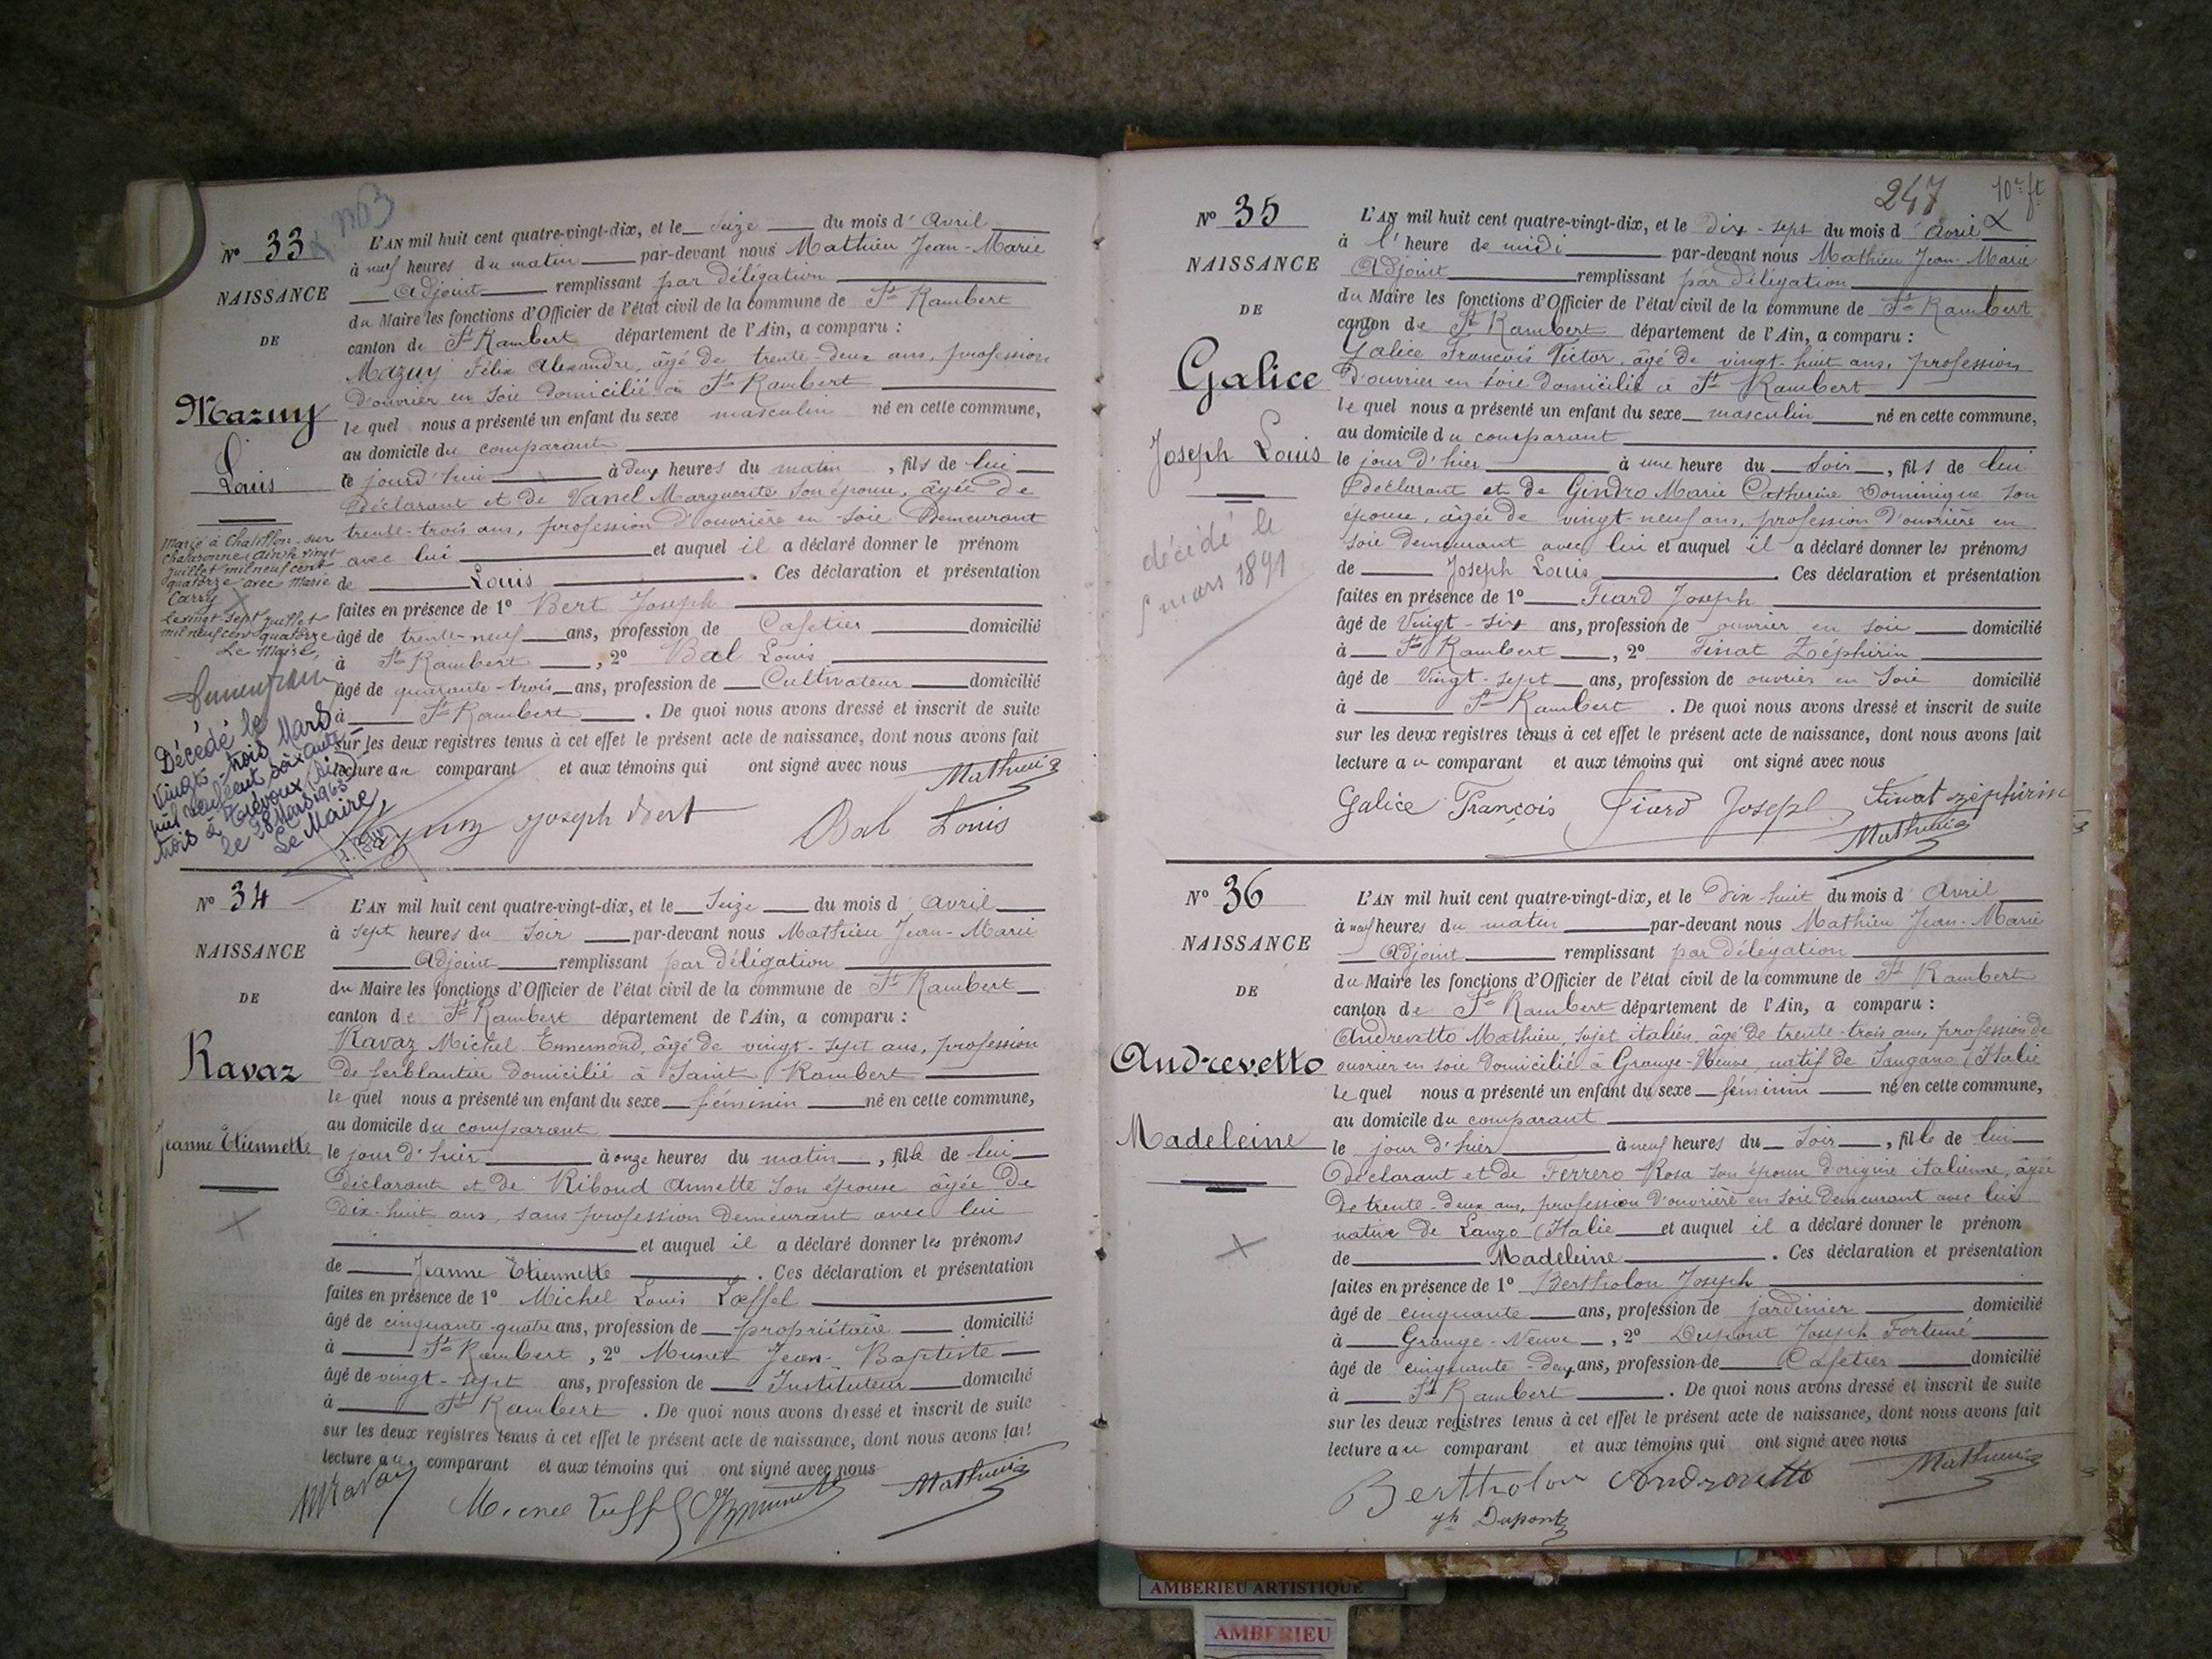 N° 33
NAISSANCE
DE
Mazuy
Louis
Marié à Chatillon-sur
Chalaronne (Ain) le vingt
juillet mil neuf cent
quatorze avec Marie
Carry
le vingt sept juillet
mil neuf cent quatorze
Le Maire,
Décédé le
vingt-trois Mars
mil neuf cent soixante
trois à Trévoux (Ain)
le 28 Mars 1963
Le Maire,
L'AN mil huit cent quatre-vingt-dix, et le Seize du mois d'Avril
à neuf heures du matin par-devant nous Mathieu Jean-Marie
Adjoint remplissant par délégation
du Maire les fonctions d'Officier de l'état civil de la commune de St Rambert
canton de St Rambert département de l'Ain, a comparu :
Mazuy Félix Alexandre, âgé de trente-deux ans, profession
d'ouvrier en soie domicilié à St Rambert
le quel nous a présenté un enfant du sexe masculin né en cette commune,
au domicile du comparant
le jourd'hui à deux heures du matin, fils de lui
déclarant et de Vanel Marguerite son épouse, âgée de
trente-trois ans, profession d'ouvrière en soie demeurant
avec lui et auquel il a déclaré donner le prénom
de Louis. Ces déclaration et présentation
faites en présence de 1° Bert Joseph
âgé de trente-neuf ans, profession de Cafetier domicilié
à St Rambert, 2° Bal Louis
âgé de quarante-trois ans, profession de Cultivateur domicilié
à St Rambert. De quoi nous avons dressé et inscrit de suite
sur les deux registres tenus à cet effet le présent acte de naissance, dont nous avons fait
lecture au comparant et aux témoins qui ont signé avec nous
Mathieu
Mazuy Joseph Bert Bal Louis
N° 34
NAISSANCE
DE
Ravaz
Jeanne Etiennette
L'AN mil huit cent quatre-vingt-dix, et le Seize du mois d'Avril
à sept heures du soir par-devant nous Mathieu Jean-Marie
Adjoint remplissant par délégation
du Maire les fonctions d'Officier de l'état civil de la commune de St Rambert
canton de St Rambert département de l'Ain, a comparu :
Ravaz Michel Ennemond, âgé de vingt-sept ans, profession
de ferblantier domicilié à Saint Rambert
le quel nous a présenté un enfant du sexe féminin né en cette commune,
au domicile du comparant
le jour d'hier à onze heures du matin, fille de lui
déclarant et de Riboud Annette son épouse âgée de
dix-huit ans, sans profession demeurant avec lui
et auquel il a déclaré donner les prénoms
de Jeanne Etiennette. Ces déclaration et présentation
faites en présence de 1° Michel Louis Lœffel
âgé de cinquante-quatre ans, profession de propriétaire domicilié
à St Rambert, 2° Munet Jean-Baptiste
âgé de vingt-sept ans, profession de Instituteur domicilié
à St Rambert. De quoi nous avons dressé et inscrit de suite
sur les deux registres tenus à cet effet le présent acte de naissance, dont nous avons fait
lecture au comparant et aux témoins qui ont signé avec nous
MRavaz Mathieu
247 10e ft
N° 35
NAISSANCE
DE
Galice
Joseph Louis
décédé le
mars 1891
L'AN mil huit cent quatre-vingt-dix, et le dix-sept du mois d'avril
à l'heure de midi par-devant nous Mathieu Jean-Marie
Adjoint remplissant par délégation
du Maire les fonctions d'Officier de l'état civil de la commune de St Rambert
canton de St Rambert département de l'Ain, a comparu :
Galice François Victor, âgé de vingt-huit ans, profession
d'ouvrier en soie domicilié à St Rambert
le quel nous a présenté un enfant du sexe masculin né en cette commune,
au domicile du comparant
le jour d'hier à une heure du soir, fils de lui
déclarant et de Gindro Marie Catherine Dominique son
épouse, âgée de vingt-neuf ans, profession d'ouvrière en
soie demeurant avec lui et auquel il a déclaré donner les prénoms
de Joseph Louis. Ces déclaration et présentation
faites en présence de 1° Fiard Joseph
âgé de Vingt-six ans, profession de ouvrier en soie domicilié
à St Rambert, 2° Finat Zéphirin
âgé de Vingt-sept ans, profession de ouvrier en Soie domicilié
à St Rambert. De quoi nous avons dressé et inscrit de suite
sur les deux registres tenus à cet effet le présent acte de naissance, dont nous avons fait
lecture au comparant et aux témoins qui ont signé avec nous
Galice François Fiard Joseph Finat zéphirin
Mathieu
N° 36
NAISSANCE
DE
Andrevetto
Madeleine
L'AN mil huit cent quatre-vingt-dix, et le dix-huit du mois d'Avril
à neuf heures du matin par-devant nous Mathieu Jean-Marie
Adjoint remplissant par délégation
du Maire les fonctions d'Officier de l'état civil de la commune de St Rambert
canton de St Rambert département de l'Ain, a comparu :
Andrevetto Mathieu, sujet italien, âgé de trente-trois ans, profession de
ouvrier en soie domicilié à Grange-Neuve, natif de Sangano (Italie
le quel nous a présenté un enfant du sexe féminin né en cette commune,
au domicile du comparant
le jour d'hier à neuf heures du soir, fille de lui
déclarant et de Ferrero Rosa son épouse d'origine italienne, âgée
de trente-deux ans, profession d'ouvrière en soie demeurant avec lui
native de Lanzo (Italie et auquel il a déclaré donner le prénom
de Madeleine. Ces déclaration et présentation
faites en présence de 1° Bertholon Joseph
âgé de cinquante ans, profession de jardinier domicilié
à Grange-Neuve, 2° Dupont Joseph Fortuné
âgé de cinquante-deux ans, profession de Cafetier domicilié
à St Rambert. De quoi nous avons dressé et inscrit de suite
sur les deux registres tenus à cet effet le présent acte de naissance, dont nous avons fait
lecture au comparant et aux témoins qui ont signé avec nous
Bertholon Androvetto Mathieu
jh Dupont
AMBERIEU ARTISTIQUE
AMBERIEU